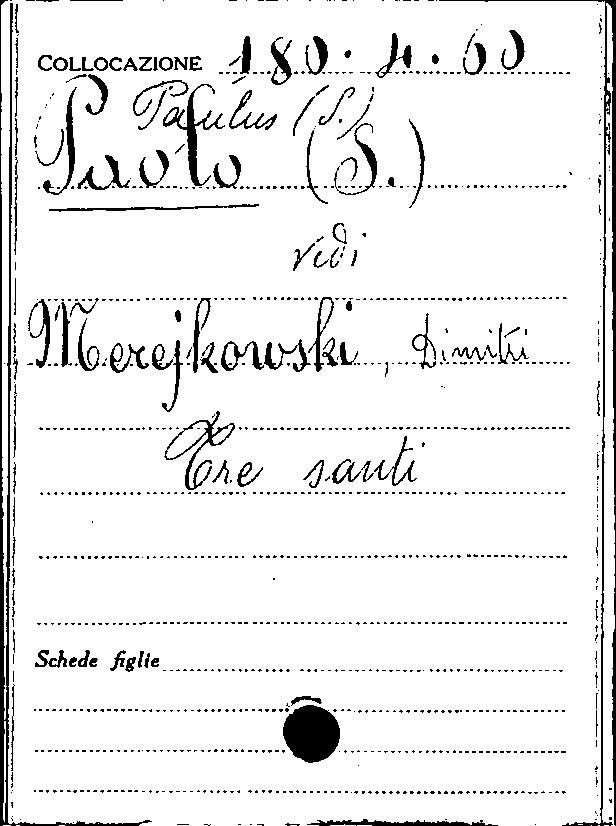 COLLOCAZIONE 180.4.60
Paulus (S.)
Paolo (S.)
vedi
Merejkowski, Dimitri
Tre santi
Schede figlie